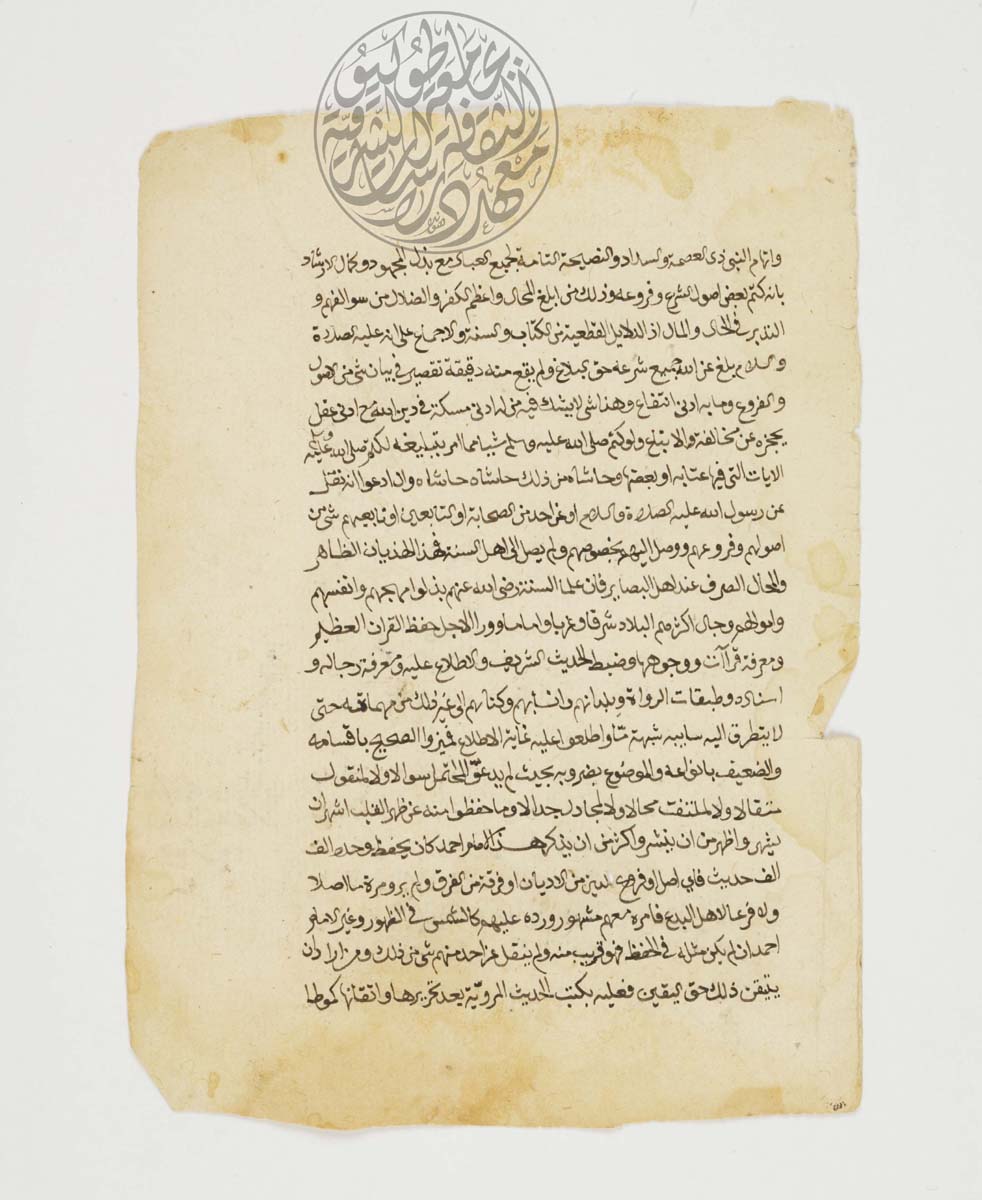 واتهام النبي ذي العصمة والسداد والنصيحة التامة لجميع العباد مع بذل المجهود وكمال الارشاد
بانه كتم بعض اصول الشرع وفروعه وذلك من ابلغ المحال واعظم الكفر والضلال من سوالفهم و
التدبر في الحال والمال اذ الدلايل القطعية من الكتاب والسنة والاجماع على انه عليه الصلاة
والسلام بلغ عن الله جميع شرعه حق البلاغ ولم يقع منه دقيقة تقصير في بيان شي من الاصول
والفروع وما به ادنى انتفاع وهذا شي لا يشك فيه من له ادنى مسكة في دين الله او ادنى عقل
يحجزه عن مخالفة والابتداع ولو كتم صلى الله عليه وسلم شيا مما امر بتبليغه لكتم صلى الله عليه وسلم
الايات التي فيها عتابه او بعضها وحاشاه من ذلك حاشاه حاشاه وان ادعوا انه نقل
عن رسول الله عليه الصلاة والسلام او عن احد من الصحابة او التابعين او تابعيهم شي من
اصولهم وفروعهم ووصل اليهم بخصوصهم ولم يصل الى اهل السنة فهذا الهذيان الظاهر
والمحال الصرف عند اهل البصاير فان علما السنة رضى الله عنهم بذلوا مهجهم وانفسهم
واموالهم وجال اكثرهم البلاد شرقا وغربا واماما وورا لاجل حفظ القران العظيم
ومعرفة قراآته ووجوهها وضبط الحديث الشريف والاطلاع عليه ومعرفة رجاله و
اسناده وطبقات الرواة وبلدانهم وانسابهم وكناهم الى غير ذلك من مهماته حتى
لا يتطرق اليه شبهة ما واطلعوا عليه غاية الاطلاع فميزوا الصحيح باقسامه
والضعيف بانواعه والموضوع بضروبه بحيث لم يدعوا لمحتمل سوالا ولا لمنقول
مقالا ولا لملتفت محالا ولا لمجادل جدالا وما حفظوا منه عن ظهر القلب اشهر ان
يشهر واظهر من ان ينشر واكثر من ان يذكر هذا الامام احمد كان يحفظ وحده الف
الف حديث فاي اصل او فرع لدين من الاديان او فرقة من الفرق ولم يرو مرة ما اصلا
ولا فرعا لاهل البدع فامره معهم مشهور ورده عليهم كالشمس في الظهور وغير الامام
احمد ان لم يكن مثله في الحفظ فهو قريب منه ولم ينقل عن احد منهم شي من ذلك ومن اراد ان
يتيقن ذلك حق اليقين فعليه بكتب الحديث المروية بعد تحريرها واتقانها كموطا